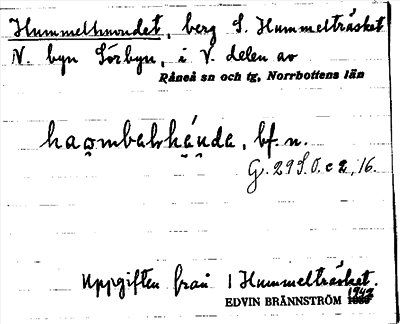 Hummelhuvudet, berg S. Hummelträsket
N. byn Sörbyn, i V. delen av
Råneå sn och tg, Norrbottens län
bf. n.
G. 29 S.O. c 2, 16.
Uppgiften från 1 Hummelträsket.
EDVIN BRÄNNSTRÖM 1949